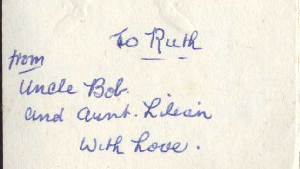 To Ruth
from
Uncle Bob.
and Aunt. Lilian
With Love.